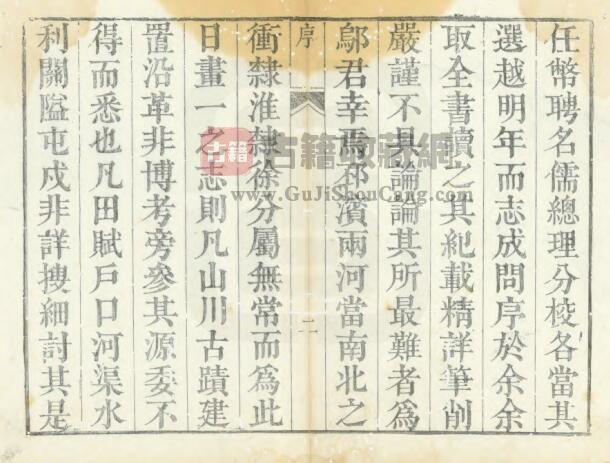 任幣聘名儒總理分校各當其
選越明年而志成問序於余余
取全書讀之其紀載精詳筆削
嚴謹不具論論其所最難者為
鄔君幸焉邳濱兩河當南北之
序
二
衝隸淮隸徐分屬無常而為此
日畫一之志則凡山川古蹟建
置沿革非博考旁參其源委不
得而悉也凡田賦戶口河渠水
利關隘屯戍非詳搜細討其是
古籍
古籍收藏網
www.GuJiShouCang.com